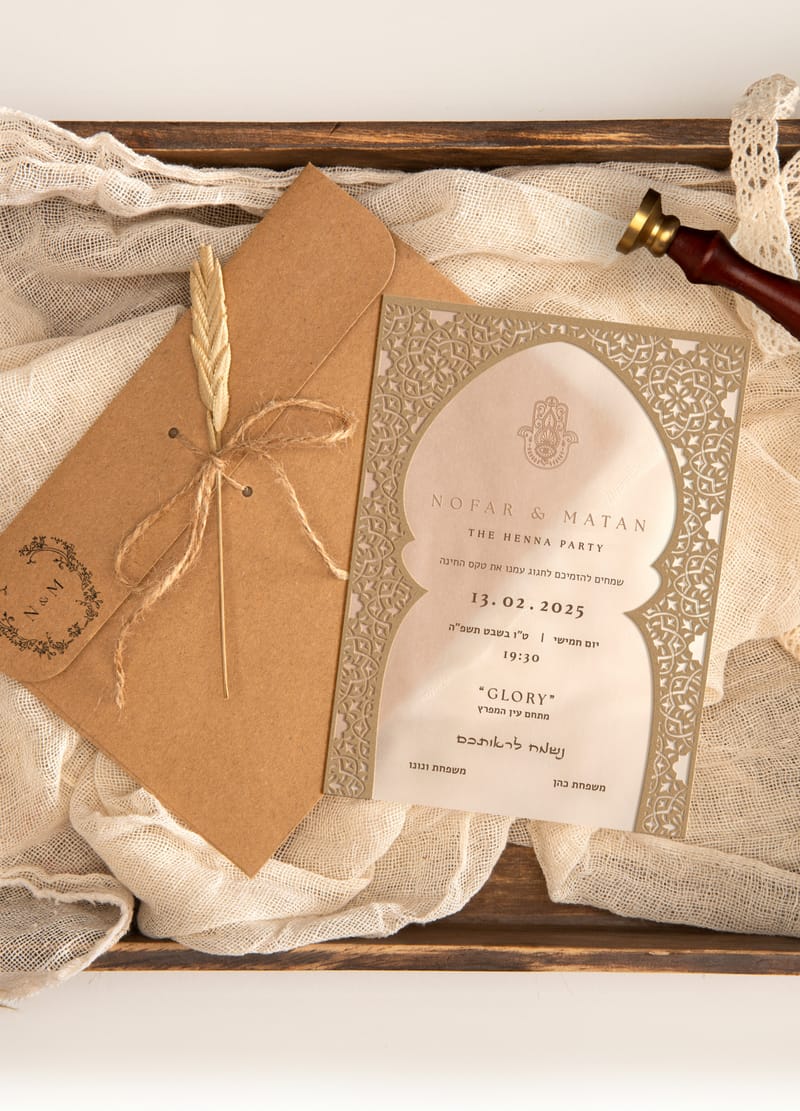 N & M
NOFAR & MATAN
THE HENNA PARTY
שמחים להזמיכם לחגוג עמנו את טקס החינה
13.02.2025
יום חמישי | ט"ו בשבט תשפ"ה
19:30
"GLORY"
מתחם עין המפרץ
נשמח לראותכם
משפחת כהן משפחת ונונו